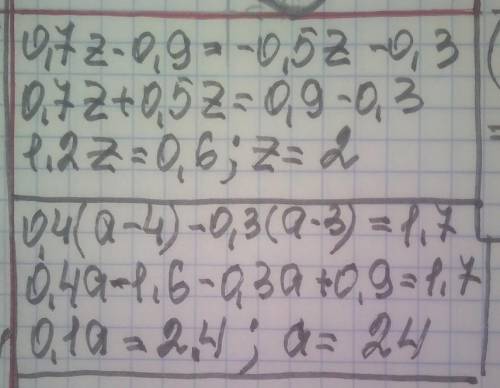 0,7z-0,9=-0,5z-0,3
0,7z+0,5z=0,9-0,3
1.2z=0,6; z=2
0,4(a-4)-0,3(a-3)=1,7
0,4a-1,6-0,3a+0,9=1,7
0,1a=2,4; a=24